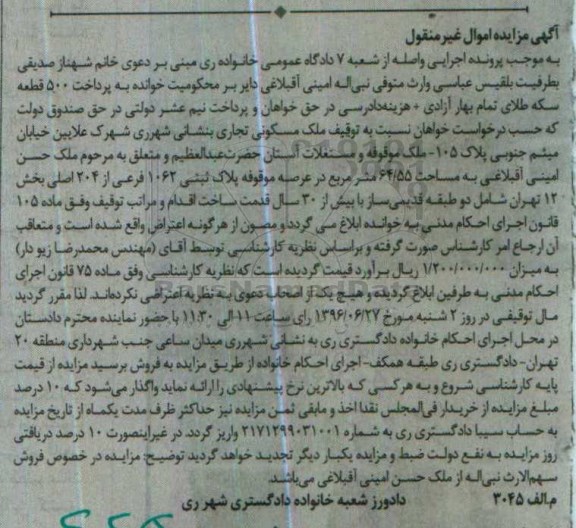 آگهی مزایده اموال غیرمنقول
به موجب پرونده اجرایی واصله از شعبه ۷ دادگاه عمومی خانواده ری مبنی بر دعوی خانم شهناز صدیقی
بطرفیت بلقیس عباسی وارث متوفی نبی‌اله امینی آقبلاغی دایر بر محکومیت خوانده به پرداخت ۵۰۰ قطعه
سکه طلای تمام بهار آزادی + هزینه‌دادرسی در حق خواهان و پرداخت نیم عشر دولتی در حق صندوق دولت
که حسب درخواست خواهان نسبت به توقیف ملک مسکونی تجاری بنشانی شهرری شهرک علایین خیابان
میثم جنوبی پلاک ۱۰۵- ملک موقوفه و مستغلات آستان حضرت‌عبدالعظیم و متعلق به مرحوم ملک حسن
امینی آقبلاغی به مساحت ۶۴/۵۵ متر مربع در عرصه موقوفه پلاک ثبتی ۱۰۶۲ فرعی از ۲۰۴ اصلی بخش
۱۲ تهران شامل دو طبقه قدیمی‌ساز با بیش از ۳۰ سال قدمت ساخت اقدام و مراتب توقیف وفق ماده ۱۰۵
قانون اجرای احکام مدنی به خوانده ابلاغ می گردد و مصون از هرگونه اعتراض واقع شده است و متعاقب
آن ارجاع امر کارشناس صورت گرفته و براساس نظریه کارشناسی توسط آقای (مهندس محمدرضا زیو دار)
به میزان ۱/۲۰۰/۰۰۰/۰۰۰ ریال برآورد قیمت گردیده است که نظریه کارشناسی وفق ماده ۷۵ قانون اجرای
احکام مدنی به طرفین ابلاغ گردیده و هیچ یک از اصحاب دعوی به نظریه اعتراضی نکرده‌اند. لذا مقرر گردید
مال توقیفی در روز ۲ شنبه مورخ ۱۳۹۶/۰۶/۲۷ رای ساعت ۱۱ الی ۱۱:۳۰ با حضور نماینده محترم دادستان
در محل اجرای احکام خانواده دادگستری ری به نشانی شهرری میدان ساعی جنب شهرداری منطقه ۲۰
تهران- دادگستری ری طبقه همکف- اجرای احکام خانواده از طریق مزایده به فروش برسید مزایده از قیمت
پایه کارشناسی شروع و به هر کسی که بالاترین نرخ پیشنهادی را ارائه نماید واگذار می‌شود که ۱۰ درصد
مبلغ مزایده از خریدار فی‌المجلس نقدا اخذ و مابقی ثمن مزایده نیز حداکثر ظرف مدت یکماه از تاریخ مزایده
به حساب سیبا دادگستری ری به شماره ۲۱۷۱۲۹۹۰۳۱۰۰۱ واریز گردد. در غیراینصورت ۱۰ درصد دریافتی
روز مزایده به نفع دولت ضبط و مزایده یکبار دیگر تجدید خواهد گردید توضیح: مزایده در خصوص فروش
سهم‌الارث نبی‌اله از ملک حسن امینی آقبلاغی می‌باشد.
م.الف ۳۰۴۵ دادورز شعبه خانواده دادگستری شهر ری